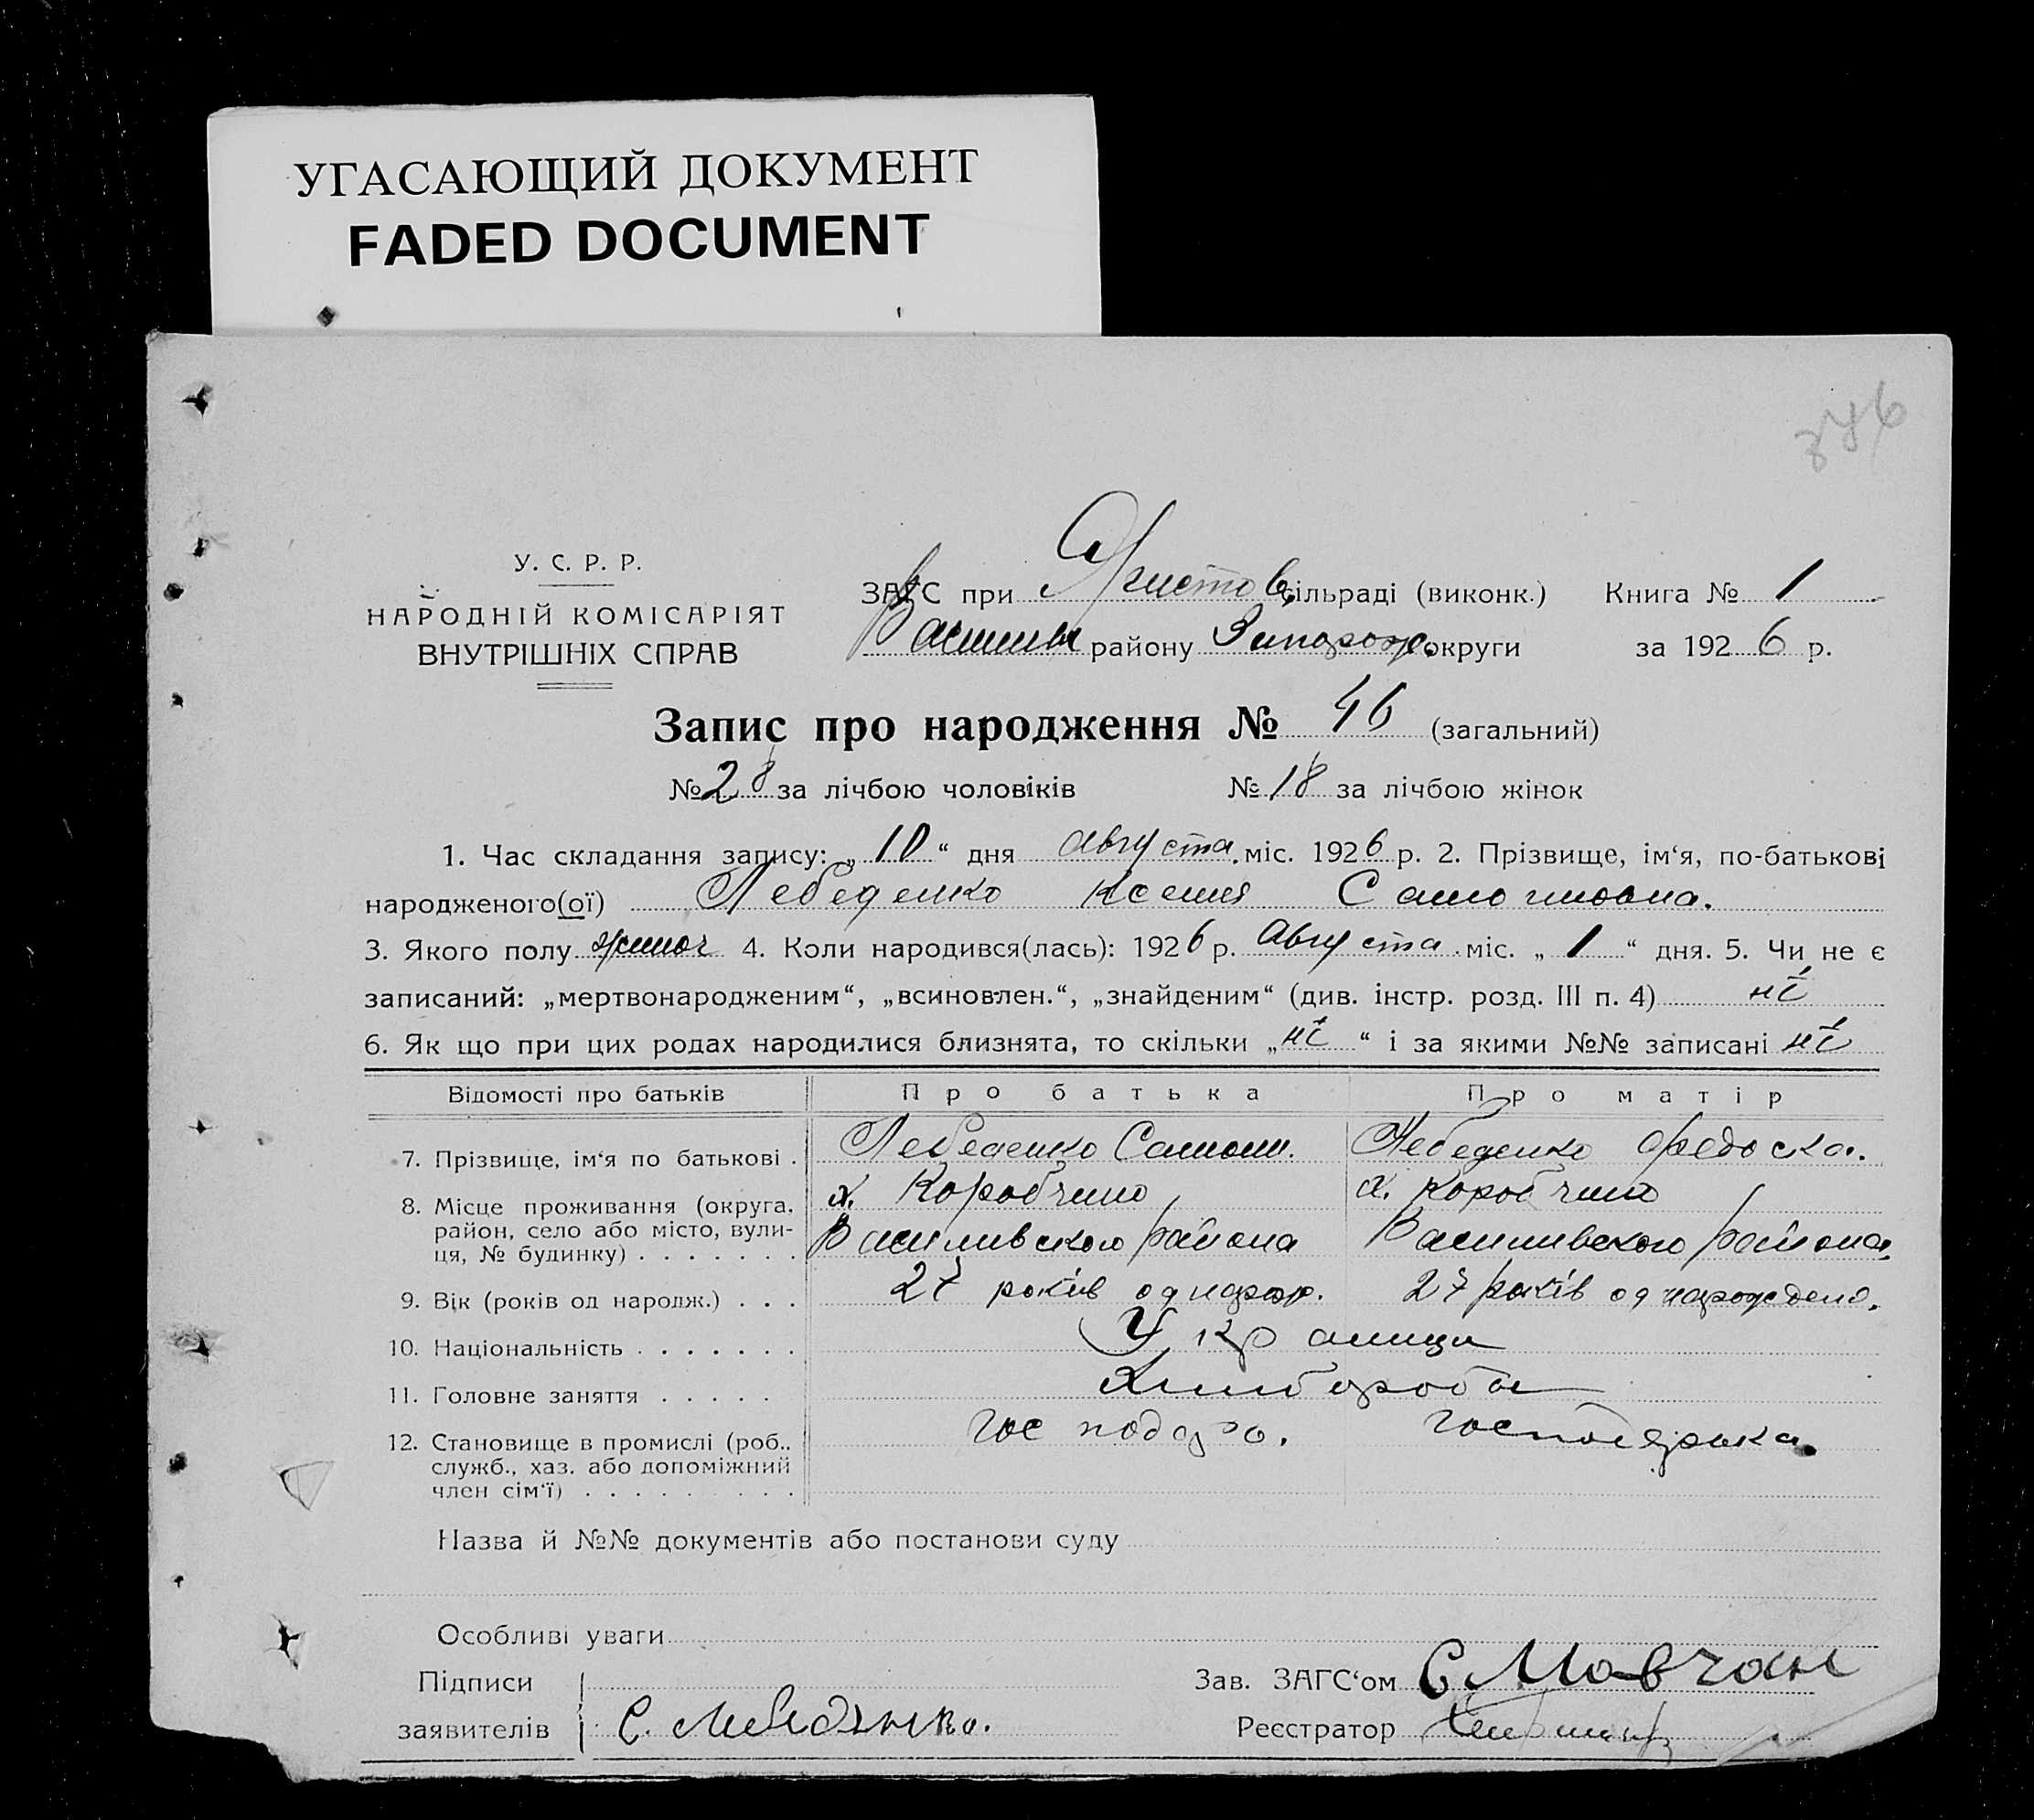 УГАСАЮЩИЙ ДОКУМЕНТ
FADED DOCUMENT
346
У. С. Р. Р.
НАРОДНІЙ КОМІСАРІЯТ
ВНУТРІШНІХ СПРАВ
ЗАГС при сільраді (виконк.) Книга № 1
Васили району Запорож. округи за 1926 р.
Запис про народження № 46 (загальний)
№ 28 за лічбою чоловіків № 18 за лічбою жінок
1. Час складання запису: „10“ дня августа. міс. 1926 р. 2. Прізвище, ім‘я, по-батькові
народженого(ої) Лебеденко Ксения Самогиловна.
3. Якого полу жіноч 4. Коли народився(лась): 1926 р. Августа міс. „1“ дня. 5. Чи не є
записаний: „мертвонародженим“, „всиновлен.“, „знайденим“ (див. інстр. розд. III п. 4) ні
6. Як що при цих родах народилися близнята, то скільки „ні“ і за якими №№ записані ні
Відомості про батьків Про батька Про матір
7. Прізвище, ім‘я по батькові . Лебеденко Самоил. Лебеденко Федоска.
8. Місце проживання (округа, х. Коробчино х. Коробчино
район, село або місто, вули- Василивского района Василивского района.
ця, № будинку) . . . . . . .
9. Вік (років од народж.) . . . 27 років од народ. 27 років од нарождено.
10. Національність . . . . . . . Украинци
11. Головне заняття . . . . . Хлибороби
12. Становище в промислі (роб., господар. господарька.
служб., хаз. або допоміжний
член сім‘ї) . . . . . . . . .
Назва й №№ документів або постанови суду
Особливі уваги
Підписи Зав. ЗАГС‘ом С Мовчан
заявителів С. Лебеденко. Реєстратор